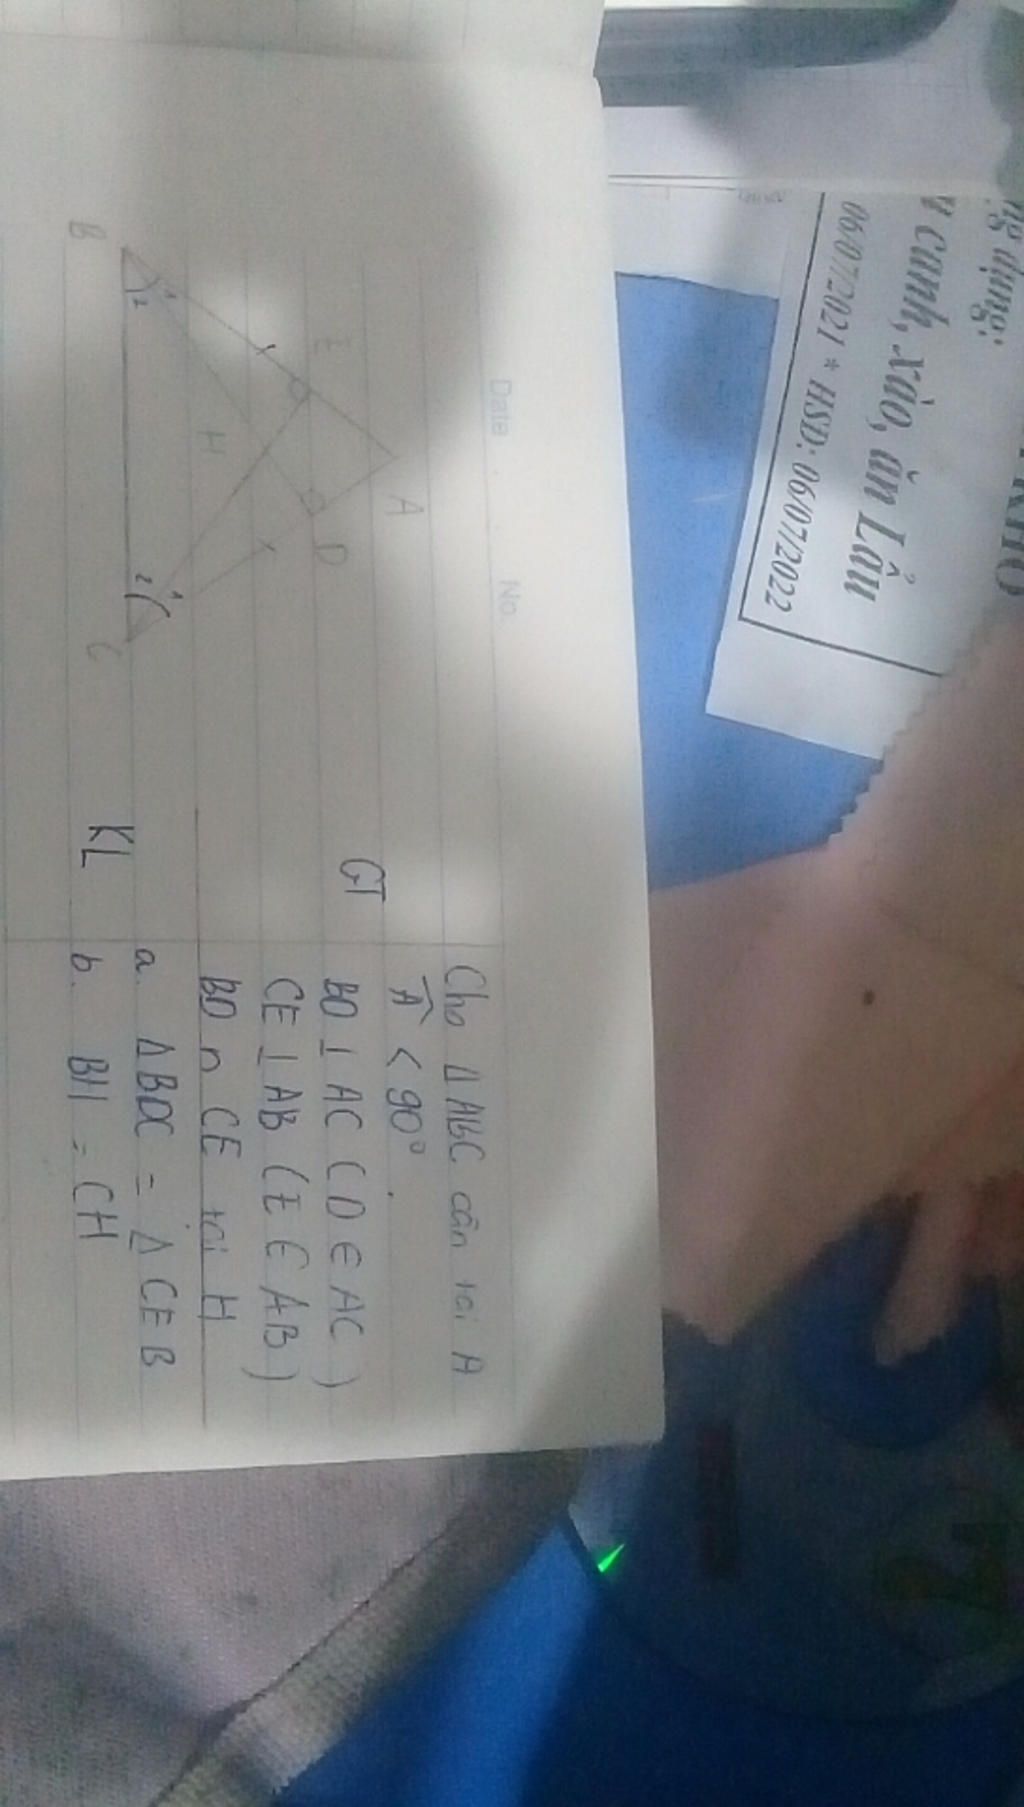 ng dụng:
canh, xào, ăn Lẩu
06/07/2021 * HSD: 06/07/2022
Date No.
A
E D
H
1 1
2 2
B C
Cho Δ ABC cân tại A
Â < 90°.
GT BD ⊥ AC ( D ∈ AC )
CE ⊥ AB ( E ∈ AB )
BD ∩ CE tại H
a. Δ BDC = Δ CEB
KL b. BH = CH